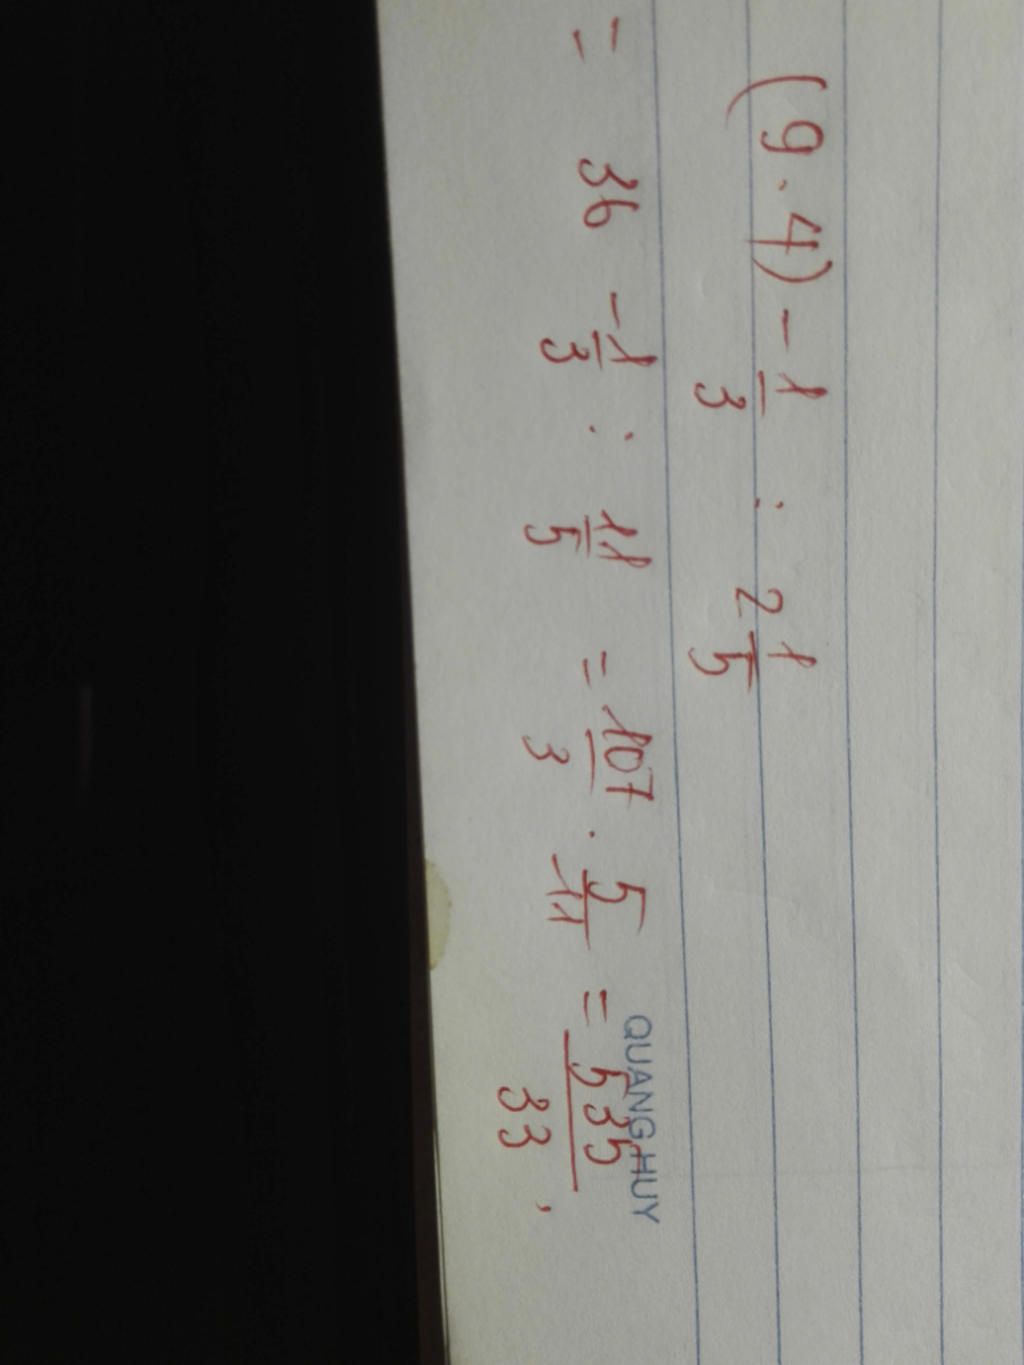 (9.4) - 1/3 : 2 1/5
= 36 - 1/3 : 11/5 = 107/3 . 5/11 = 535/33 ,
QUANG HUY